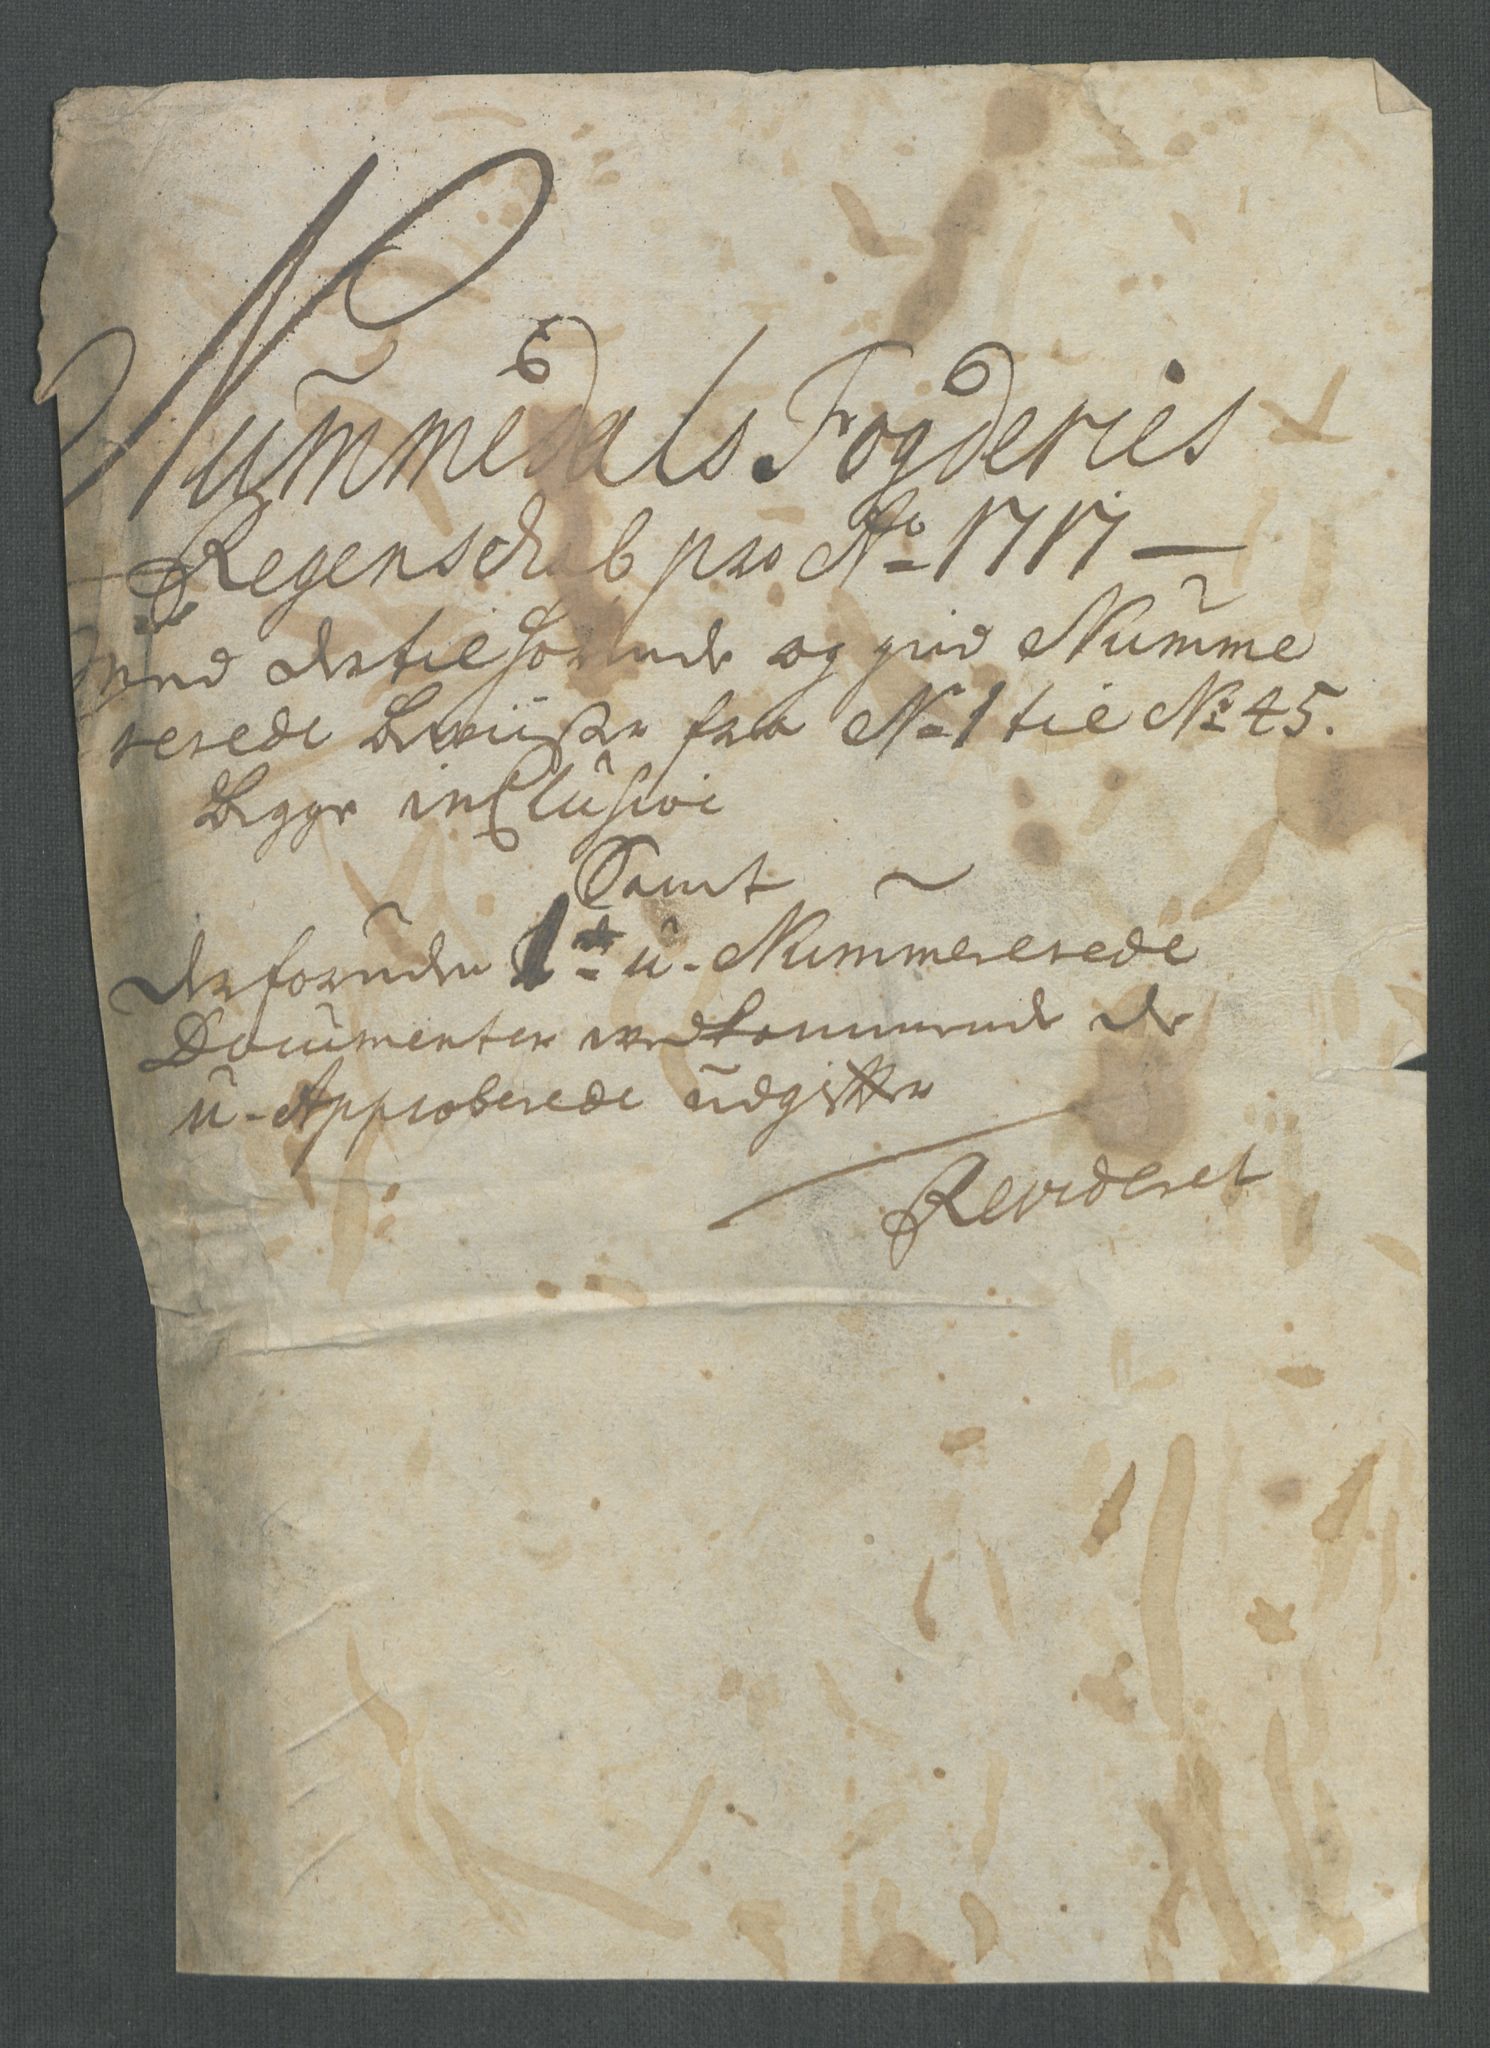 Nummedals Fogderies
Regenschab pro Ao 1717 —
med dertil hørende og Numme
rerede beviiser fra No 1 til No 45.
begge inclusive
Samt
derforuden 1 st u-Nummererede
Documenter vedkommende de
u-Approberede udgifter
Revideret